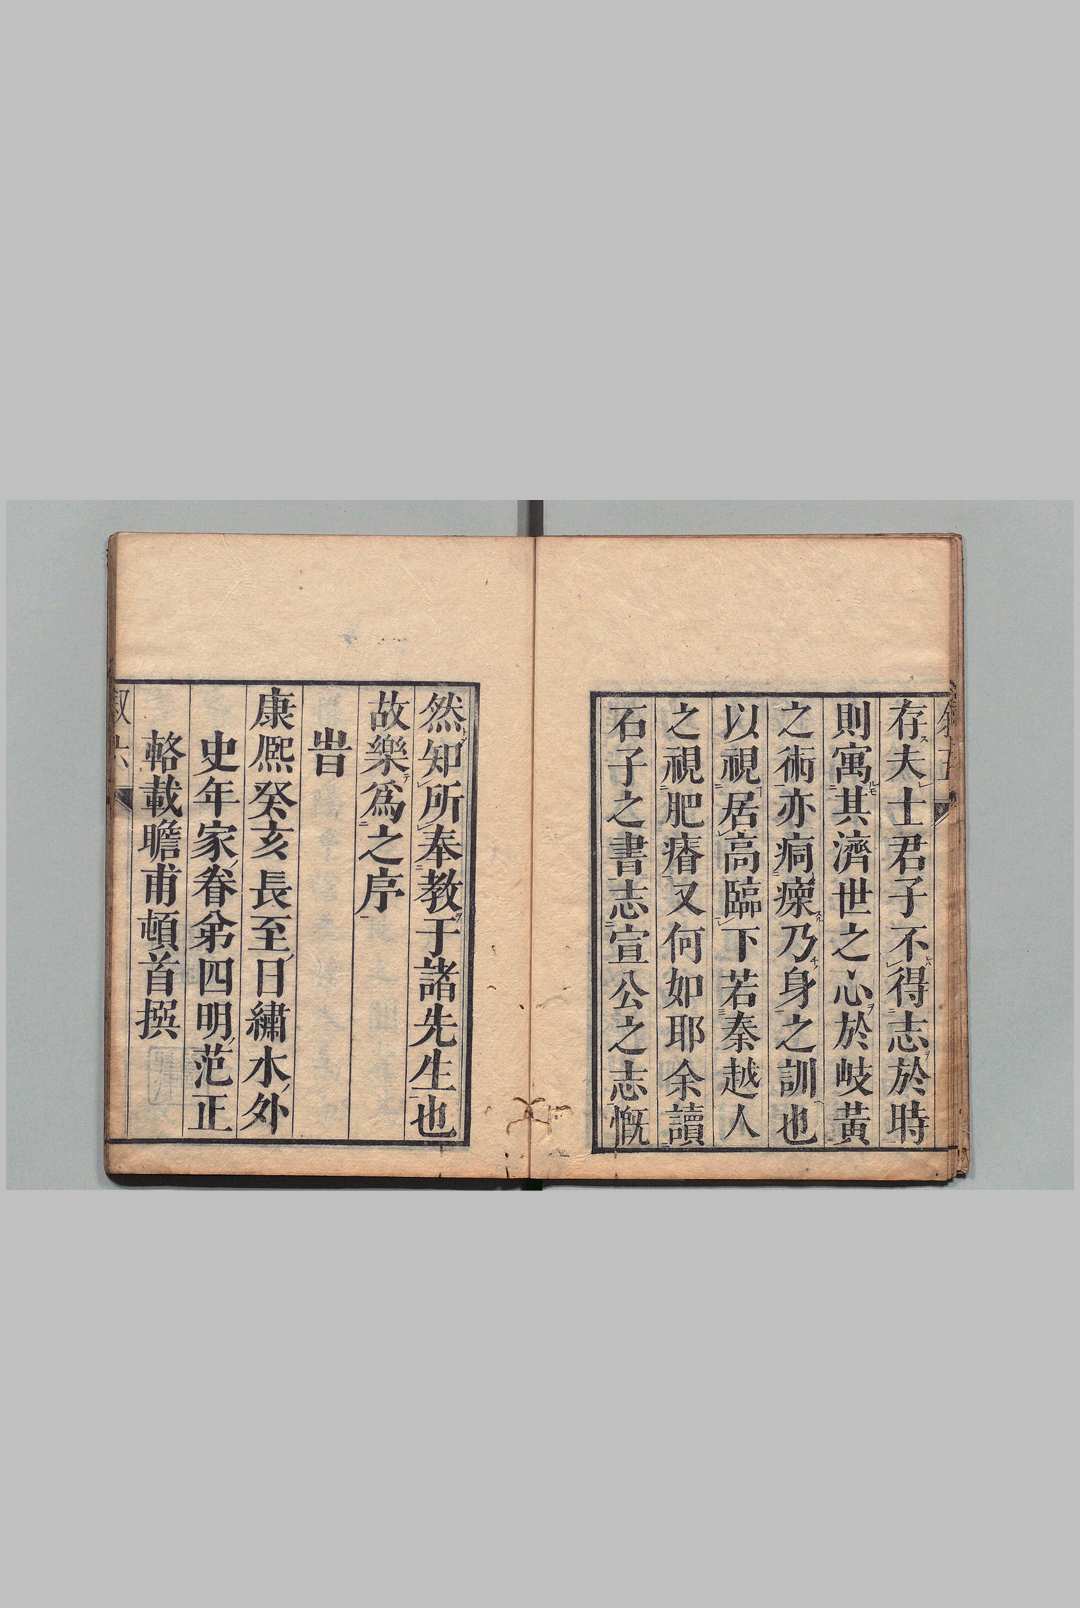 存夫士君子不得志於時
則寓其濟世之心於岐黃
之術亦痌瘝乃身之訓也
以視居高臨下若秦越人
之視肥瘠又何如耶余讀
石子之書志宣公之志慨
然知所奉教于諸先生也
故樂為之序
旹
康熈癸亥長至日繡水外
史年家眷弟四明范正
輅載瞻甫頓首撰